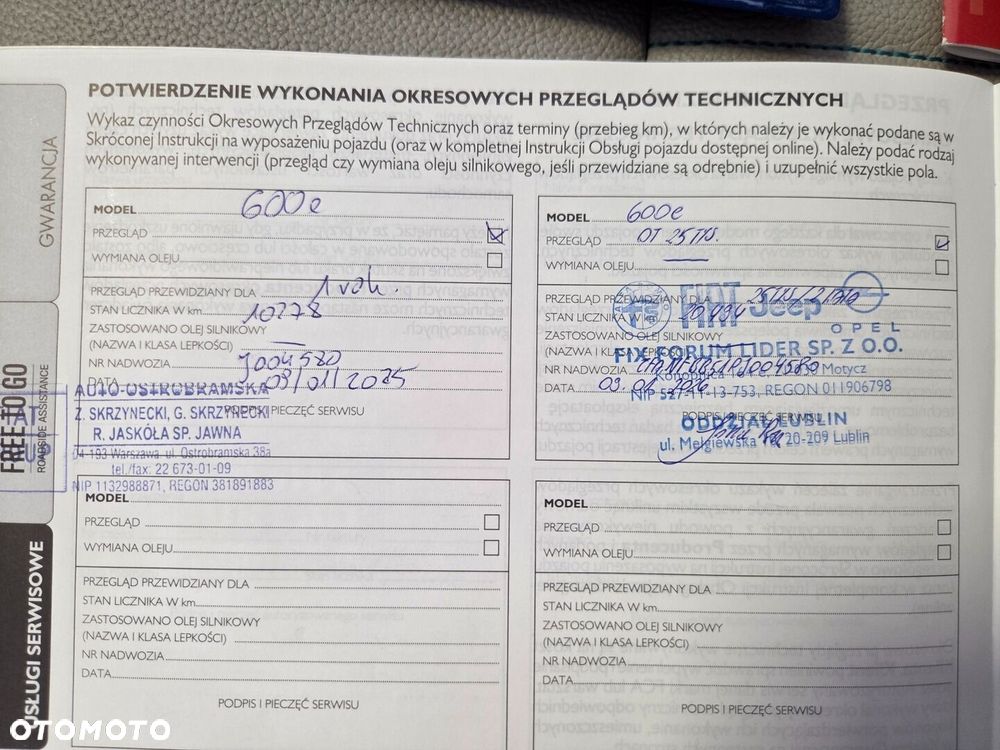 POTWIERDZENIE WYKONANIA OKRESOWYCH PRZEGLĄDÓW TECHNICZNYCH
Wykaz czynności Okresowych Przeglądów Technicznych oraz terminy (przebieg km), w których należy je wykonać podane są w
Skróconej Instrukcji na wyposażeniu pojazdu (oraz w kompletnej Instrukcji Obsługi pojazdu dostępnej online). Należy podać rodzaj
wykonywanej interwencji (przegląd czy wymiana oleju silnikowego, jeśli przewidziane są odrębnie) i uzupełnić wszystkie pola.
GWARANCJA
FREE TO GO
ROADSIDE ASSISTANCE
USŁUGI SERWISOWE
MODEL 600e
PRZEGLĄD
WYMIANA OLEJU
PRZEGLĄD PRZEWIDZIANY DLA 1 rok.
STAN LICZNIKA W km 10278
ZASTOSOWANO OLEJ SILNIKOWY
(NAZWA I KLASA LEPKOŚCI) —
NR NADWOZIA J004580
DATA 09/01/2025
PODPIS I PIECZĘĆ SERWISU
AUTO-OSTROBRAMSKA
Z. SKRZYNECKI, G. SKRZYNECKI
R. JASKÓŁA SP. JAWNA
04-193 Warszawa, ul. Ostrobramska 38a
tel./fax: 22 673-01-09
NIP 1132988871, REGON 381891883
MODEL 600e
PRZEGLĄD OT 25TYS.
WYMIANA OLEJU —
PRZEGLĄD PRZEWIDZIANY DLA
STAN LICZNIKA W km
ZASTOSOWANO OLEJ SILNIKOWY
(NAZWA I KLASA LEPKOŚCI)
NR NADWOZIA
DATA 09.01.2026
PODPIS I PIECZĘĆ SERWISU
FIAT Jeep
OPEL
FIX FORUM LIDER SP. Z O.O.
Konopnica Motycz
NIP 527-11-13-753, REGON 011906798
ODDZIAŁ LUBLIN
ul. Mełgiewska 20-209 Lublin
MODEL
PRZEGLĄD
WYMIANA OLEJU
PRZEGLĄD PRZEWIDZIANY DLA
STAN LICZNIKA W km
ZASTOSOWANO OLEJ SILNIKOWY
(NAZWA I KLASA LEPKOŚCI)
NR NADWOZIA
DATA
PODPIS I PIECZĘĆ SERWISU
MODEL
PRZEGLĄD
WYMIANA OLEJU
PRZEGLĄD PRZEWIDZIANY DLA
STAN LICZNIKA W km
ZASTOSOWANO OLEJ SILNIKOWY
(NAZWA I KLASA LEPKOŚCI)
NR NADWOZIA
DATA
PODPIS I PIECZĘĆ SERWISU
OTOMOTO